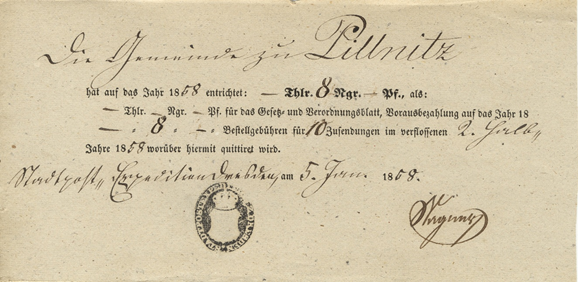 Die Gemeinde zu Pillnitz
hat auf das Jahr 1858 entrichtet: — Thlr. 8 Ngr. — Pf., als:
— Thlr. — Ngr. — Pf. für das Gesetz- und Verordnungsblatt, Vorausbezahlung auf das Jahr 18
— „ 8 „ — „ Bestellgebühren für 10 Zusendungen im verflossenen 2. Halb„
Jahre 1858 worüber hiermit quittirt wird.
Stadtpost„Expedition Dresden, am 5. Jan. 1858.
Wagner